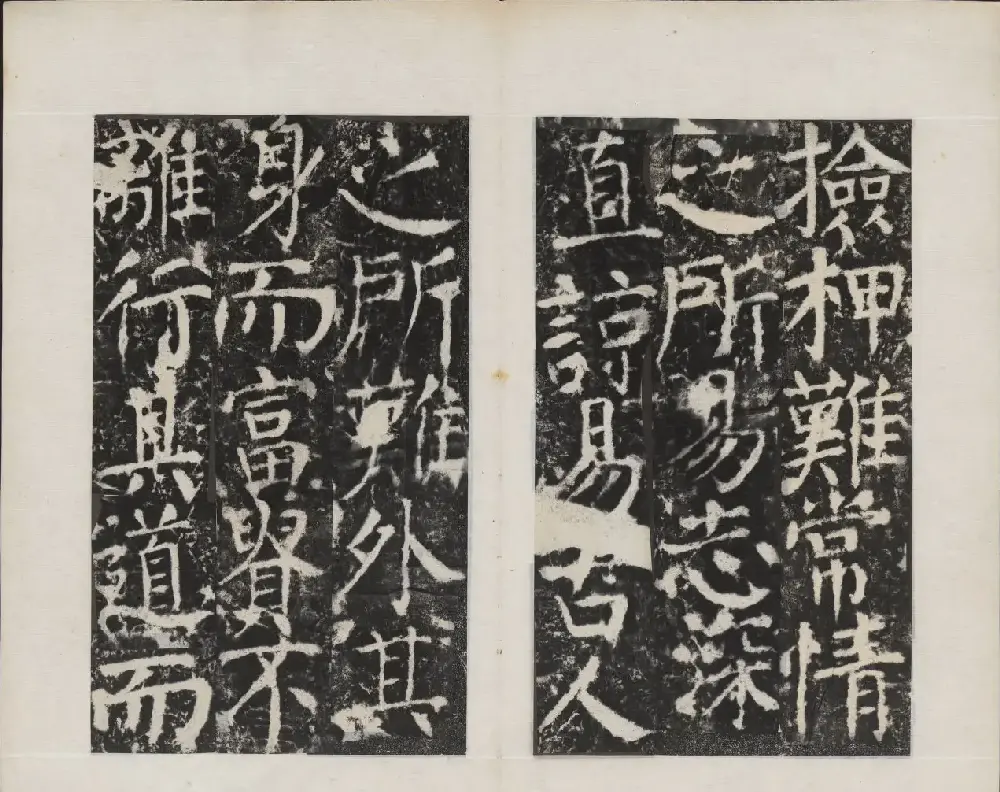 撿柙難常情
之所易志深
直諒易古人
之所難外其
身而富賢不
離行與道而